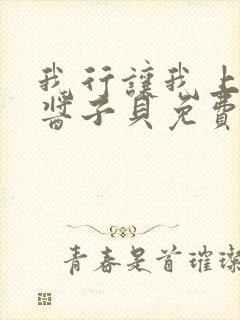 我行讓我上
醬子貝免費
青春是首璀璨